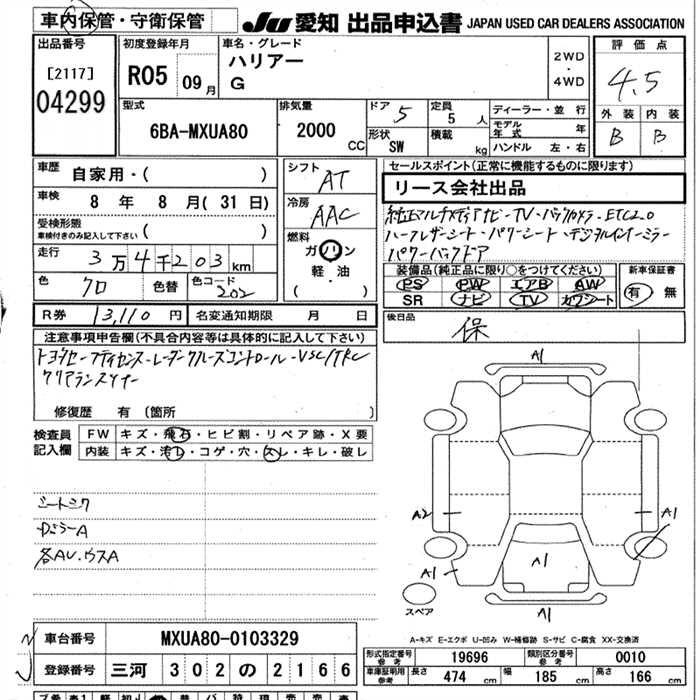 車内保管・守衛保管
JU 愛知 出品申込書 JAPAN USED CAR DEALERS ASSOCIATION
出品番号
[2117]
04299
初度登録年月
R05 09月
車名・グレード
ハリアー
G
2WD
・
4WD
評価点
4.5
外装 内装
B B
型式
6BA-MXUA80
排気量
2000 CC
ドア 5
形状 SW
定員 5 人
積載 kg
ディーラー・並行
モデル年式 年
ハンドル 左・右
車歴 自家用・( )
車検 8 年 8 月( 31 日)
受検形態
車検付きのみ記入して下さい ( )
走行 3万4千203km
色 クロ 色替 色コード 202
シフト AT
冷房 AAC
燃料
ガソリン
軽・油
( )
セールスポイント(正常に機能するものに限ります)
リース会社出品
純正マルチメディアナビ-TV-バックカメラ-ETC2.0
ハーフレザーシート-パワーシート-デジタルインナーミラー
パワーバックドア
装備品(純正品に限り○をつけてください)
PS PW エアB AW
SR ナビ TV カワシート
新車保証書
有 無
R券 13,110 円 名変通知期限 月 日
後日品
保
注意事項申告欄(不具合内容等は具体的に記入して下さい)
トヨタセーフティセンス-レーダークルーズコントロール-VSC/TRC
クリアランスソナー
修復歴 有 [箇所 ]
検査員記入欄
FW キズ・飛石・ヒビ割・リペア跡・X要
内装 キズ・汚レ・コゲ・穴・スレ・キレ・破レ
シートシワ
各AU.ウスA
A1
A2
A1
A1
A1
A1
スペア
A-キズ E-エクボ U-凹み W-補修跡 S-サビ C-腐食 XX-交換済
車台番号 MXUA80-0103329
登録番号 三河 302 の 2166
形式指定番号 参考 19696 類別区分番号 参考 0010
車庫証明用 参考 長さ 474 cm 幅 185 cm 高さ 166 cm